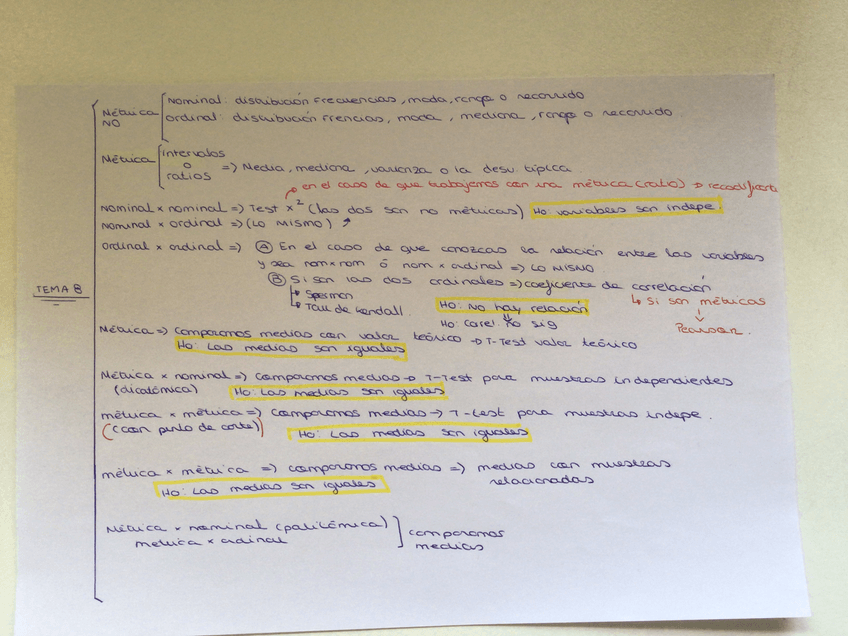 TEMA 8
Métrica NO
Nominal: distribución frecuencias, moda, rango o recorrido
Ordinal: distribución frencias, moda, mediana, rango o recorrido
Métrica
intervalos
o
ratios
=> Media, mediana, varianza o la desv. típica
en el caso de que trabajemos con una métrica (ratio) → recodificarla
nominal x nominal => Test x² (las dos son no métricas) Ho: variables son indepe.
nominal x ordinal => (LO MISMO)
ordinal x ordinal => A En el caso de que conozcas la relación entre las variables
y sea nom x nom ó nom x ordinal => LO MISMO.
B Si son las dos ordinales => coeficiente de correlación
Spesman
Tau de Kendall.
Ho: No hay relación
Ho: Corel. no sig
Si son métricas
Pearson.
Métrica => comparamos medias con valor teórico → T-Test valor teórico
Ho: Las medias son iguales
Métrica x nominal => comparamos medias → T-Test para muestras independientes
(dicotómica) Ho: Las medias son iguales
métrica x métrica => comparamos medias → T-test para muestras indepe.
(con punto de corte) Ho: Las medias son iguales
métrica x métrica => comparamos medias => medias con muestras
relacionadas
Ho: Las medias son iguales
Métrica x nominal (politómica)
métrica x ordinal
comparamos
medias